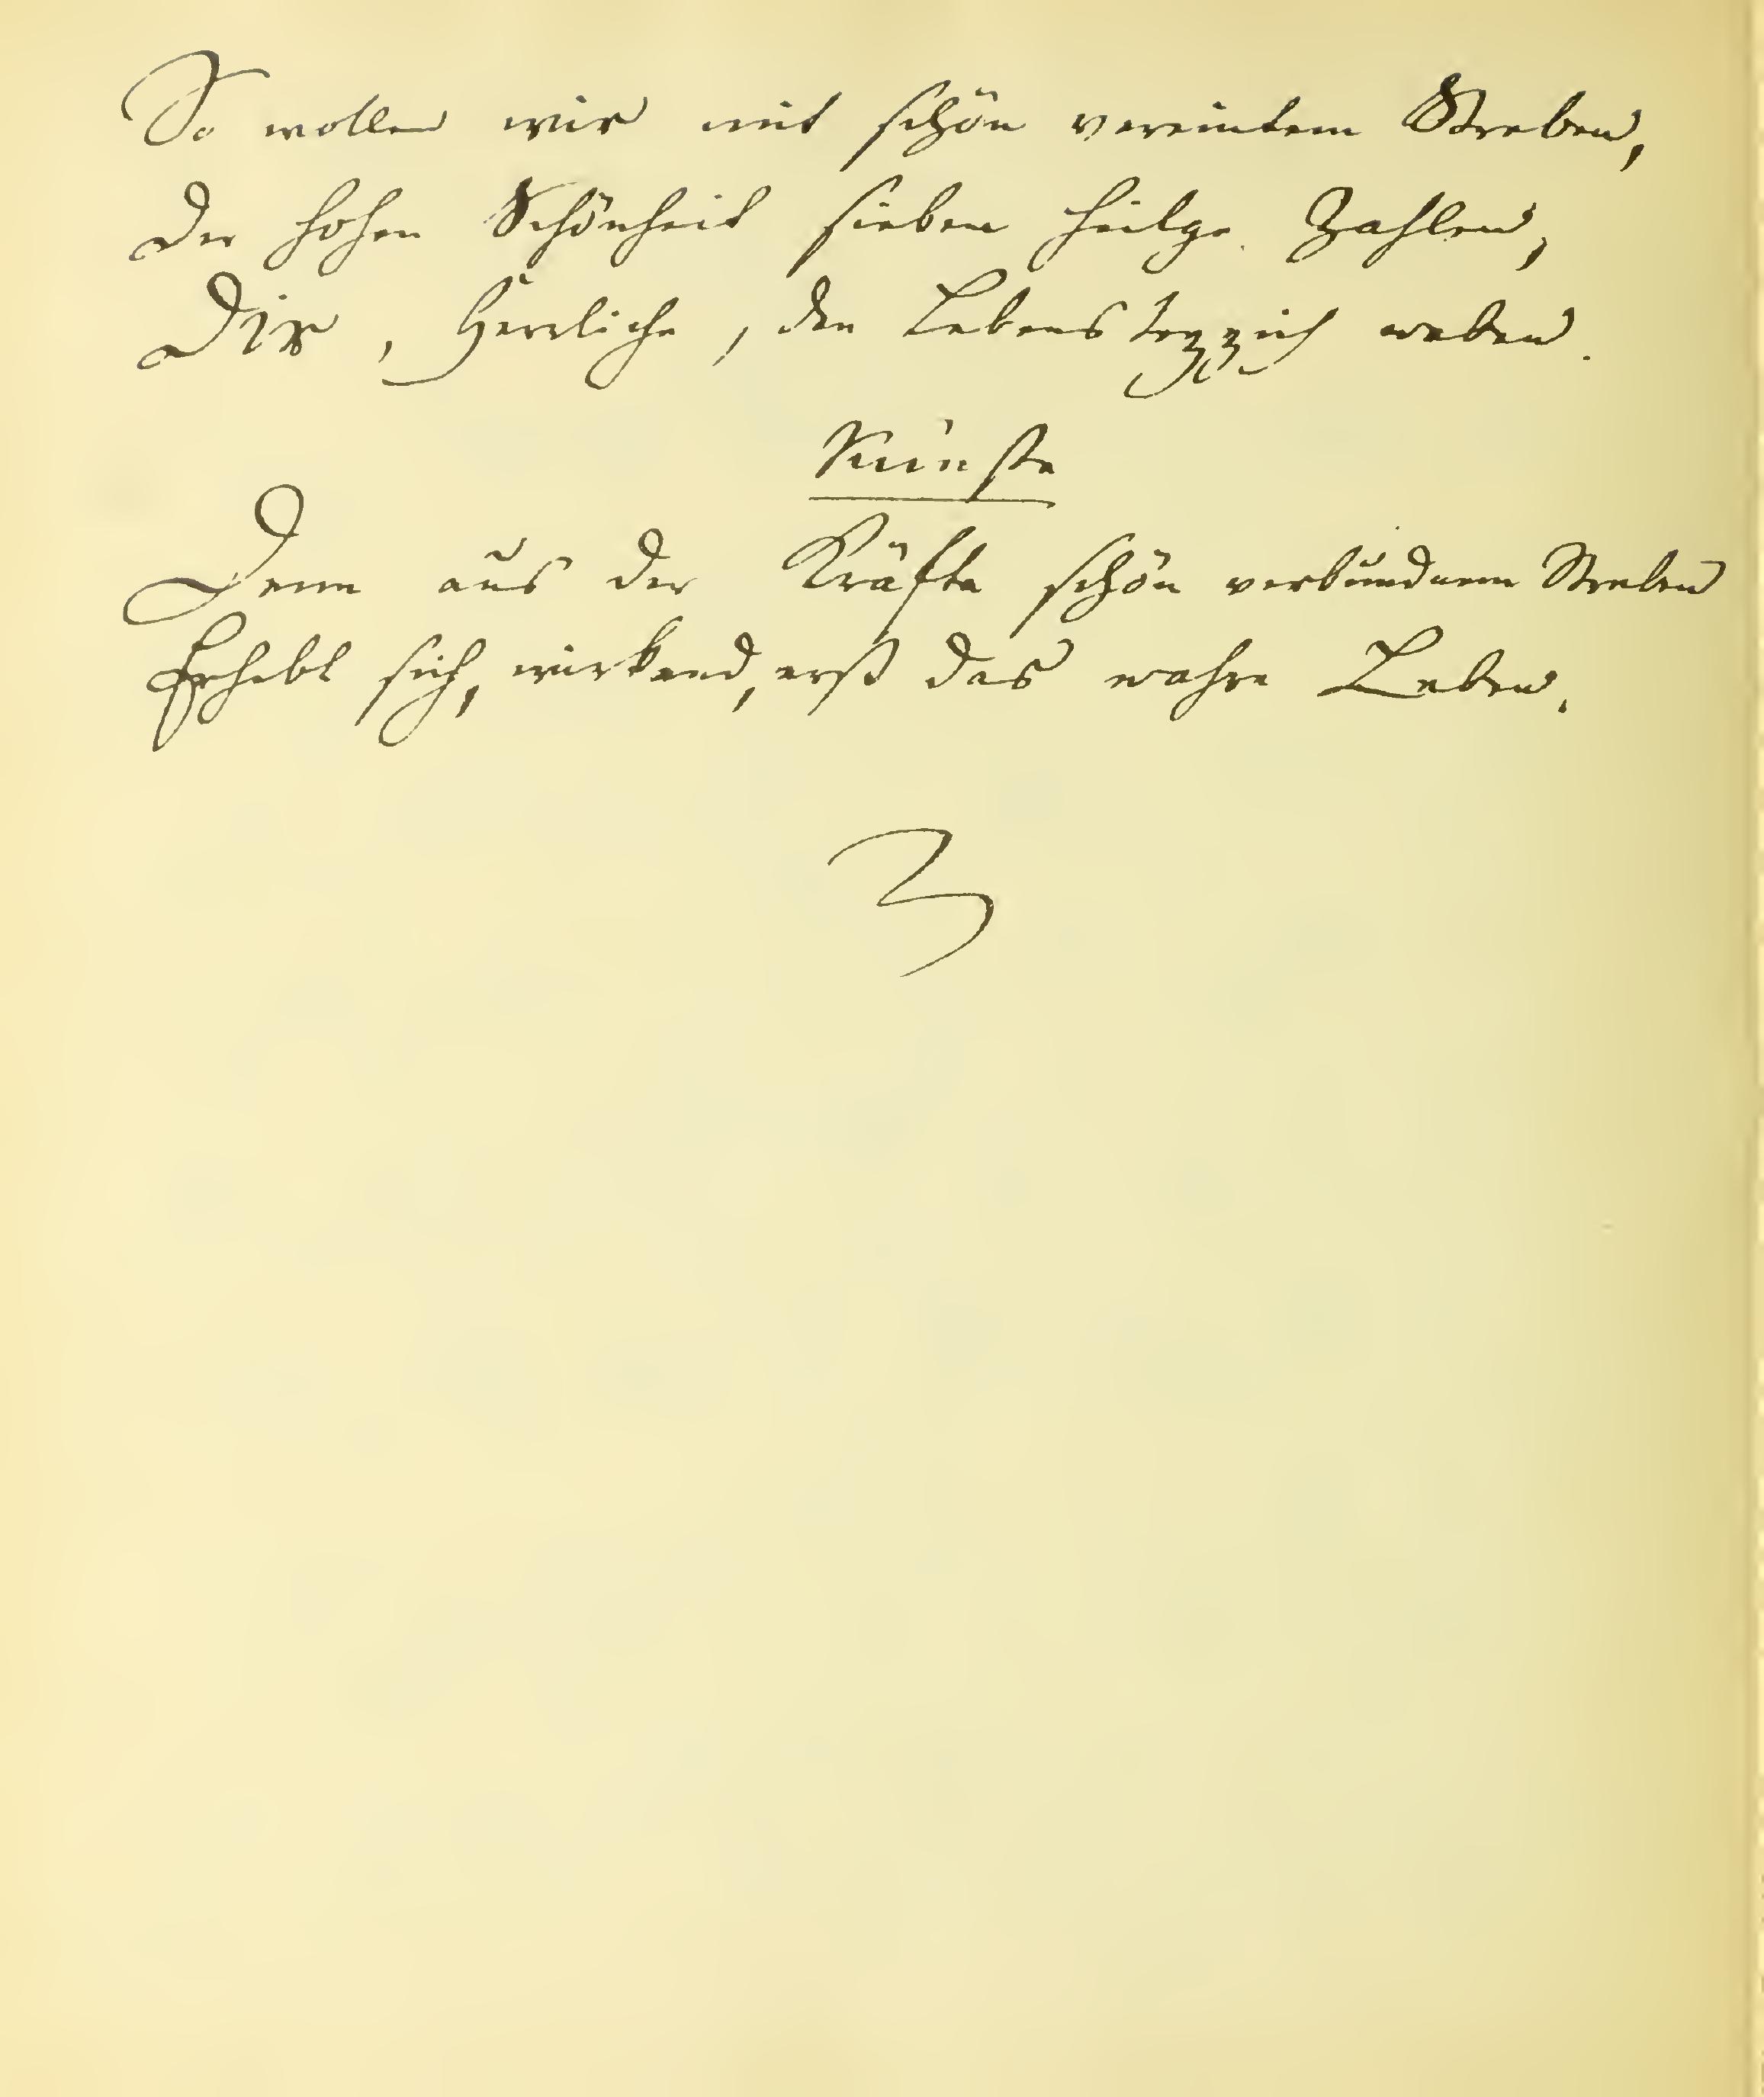 So wollen wir mit schön vereintem Streben,
Der hohen Schönheit sieben heilge Zahlen,
Dir, Herrliche, den Lebensteppich weben.
Künste
Denn aus der Kräfte schön verbundnem Streben
Erhebt sich, wirkend, erst das wahre Leben.